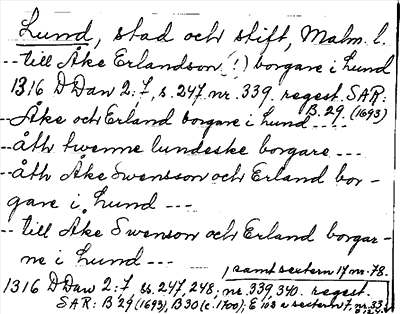 Lund, stad och stift, Malm. l.
-- till Åke Erlandson (!) borgare i Lund
1316 D Dan 2:7, s. 247 nr. 339, regest. SAR:
B. 29 (1693)
-- Åke och Erland borgare i Lund ---
-- åth twenne lundeske borgare ---
-- åth Åke Swensson och Erland bor-
gare i Lund ---
-- till Åke Swenson och Erland borgar-
ne i Lund ---
, samt sextern 17 nr. 78.
1316 D Dan 2:7, ss. 247, 248, nr. 339, 340. regest.
SAR: B 29 (1693), B 30 (c. 1700); E 103 a sextern 7, nr. 33